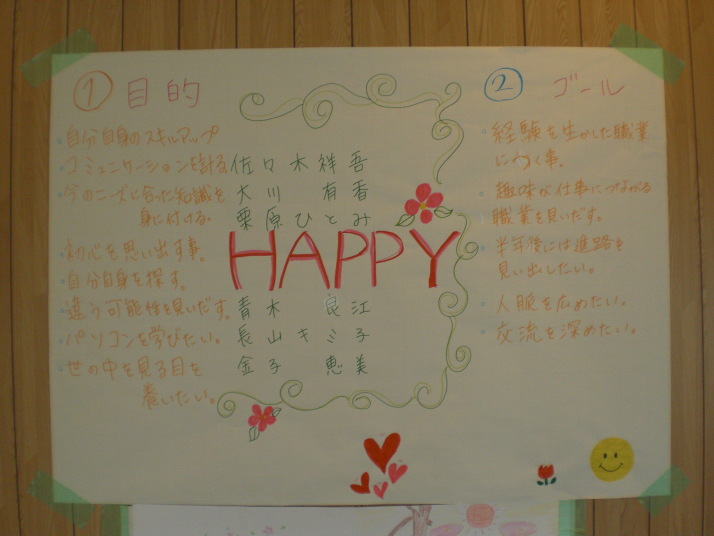 ① 目的
・自分自身のスキルアップ
・コミュニケーションを計る
・今のニーズに合った知識を
身に付ける。
・初心を思い出す事。
・自分自身を探す。
・違う可能性を見いだす。
・パソコンを学びたい。
・世の中を見る目を
養いたい。
佐々木祥吾
大川 有香
栗原ひとみ
HAPPY
青木 良江
長山キミ子
金子 恵美
② ゴール
・経験を生かした職業
につく事。
・趣味が仕事につながる
職業を見いだす。
・半年後には進路を
見い出したい。
・人脈を広めたい。
・交流を深めたい。